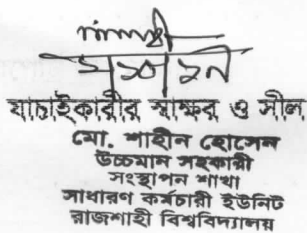 যাচাইকারীর স্বাক্ষর ও সীল
মো. শাহীন হোসেন
উচ্চমান সহকারী
সংস্থাপন শাখা
সাধারণ কর্মচারী ইউনিট
রাজশাহী বিশ্ববিদ্যালয়